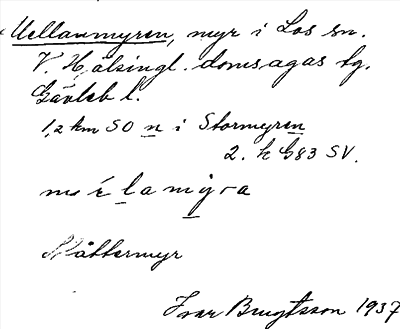 Mellanmyren, myr i Los sn.
V. Hälsingl. domsagas tg.
Gävleb l.
1,2 km SO n i Stormyren
2. k G83 SV.
myra
Slåttermyr
Ivar Bengtsson 1937